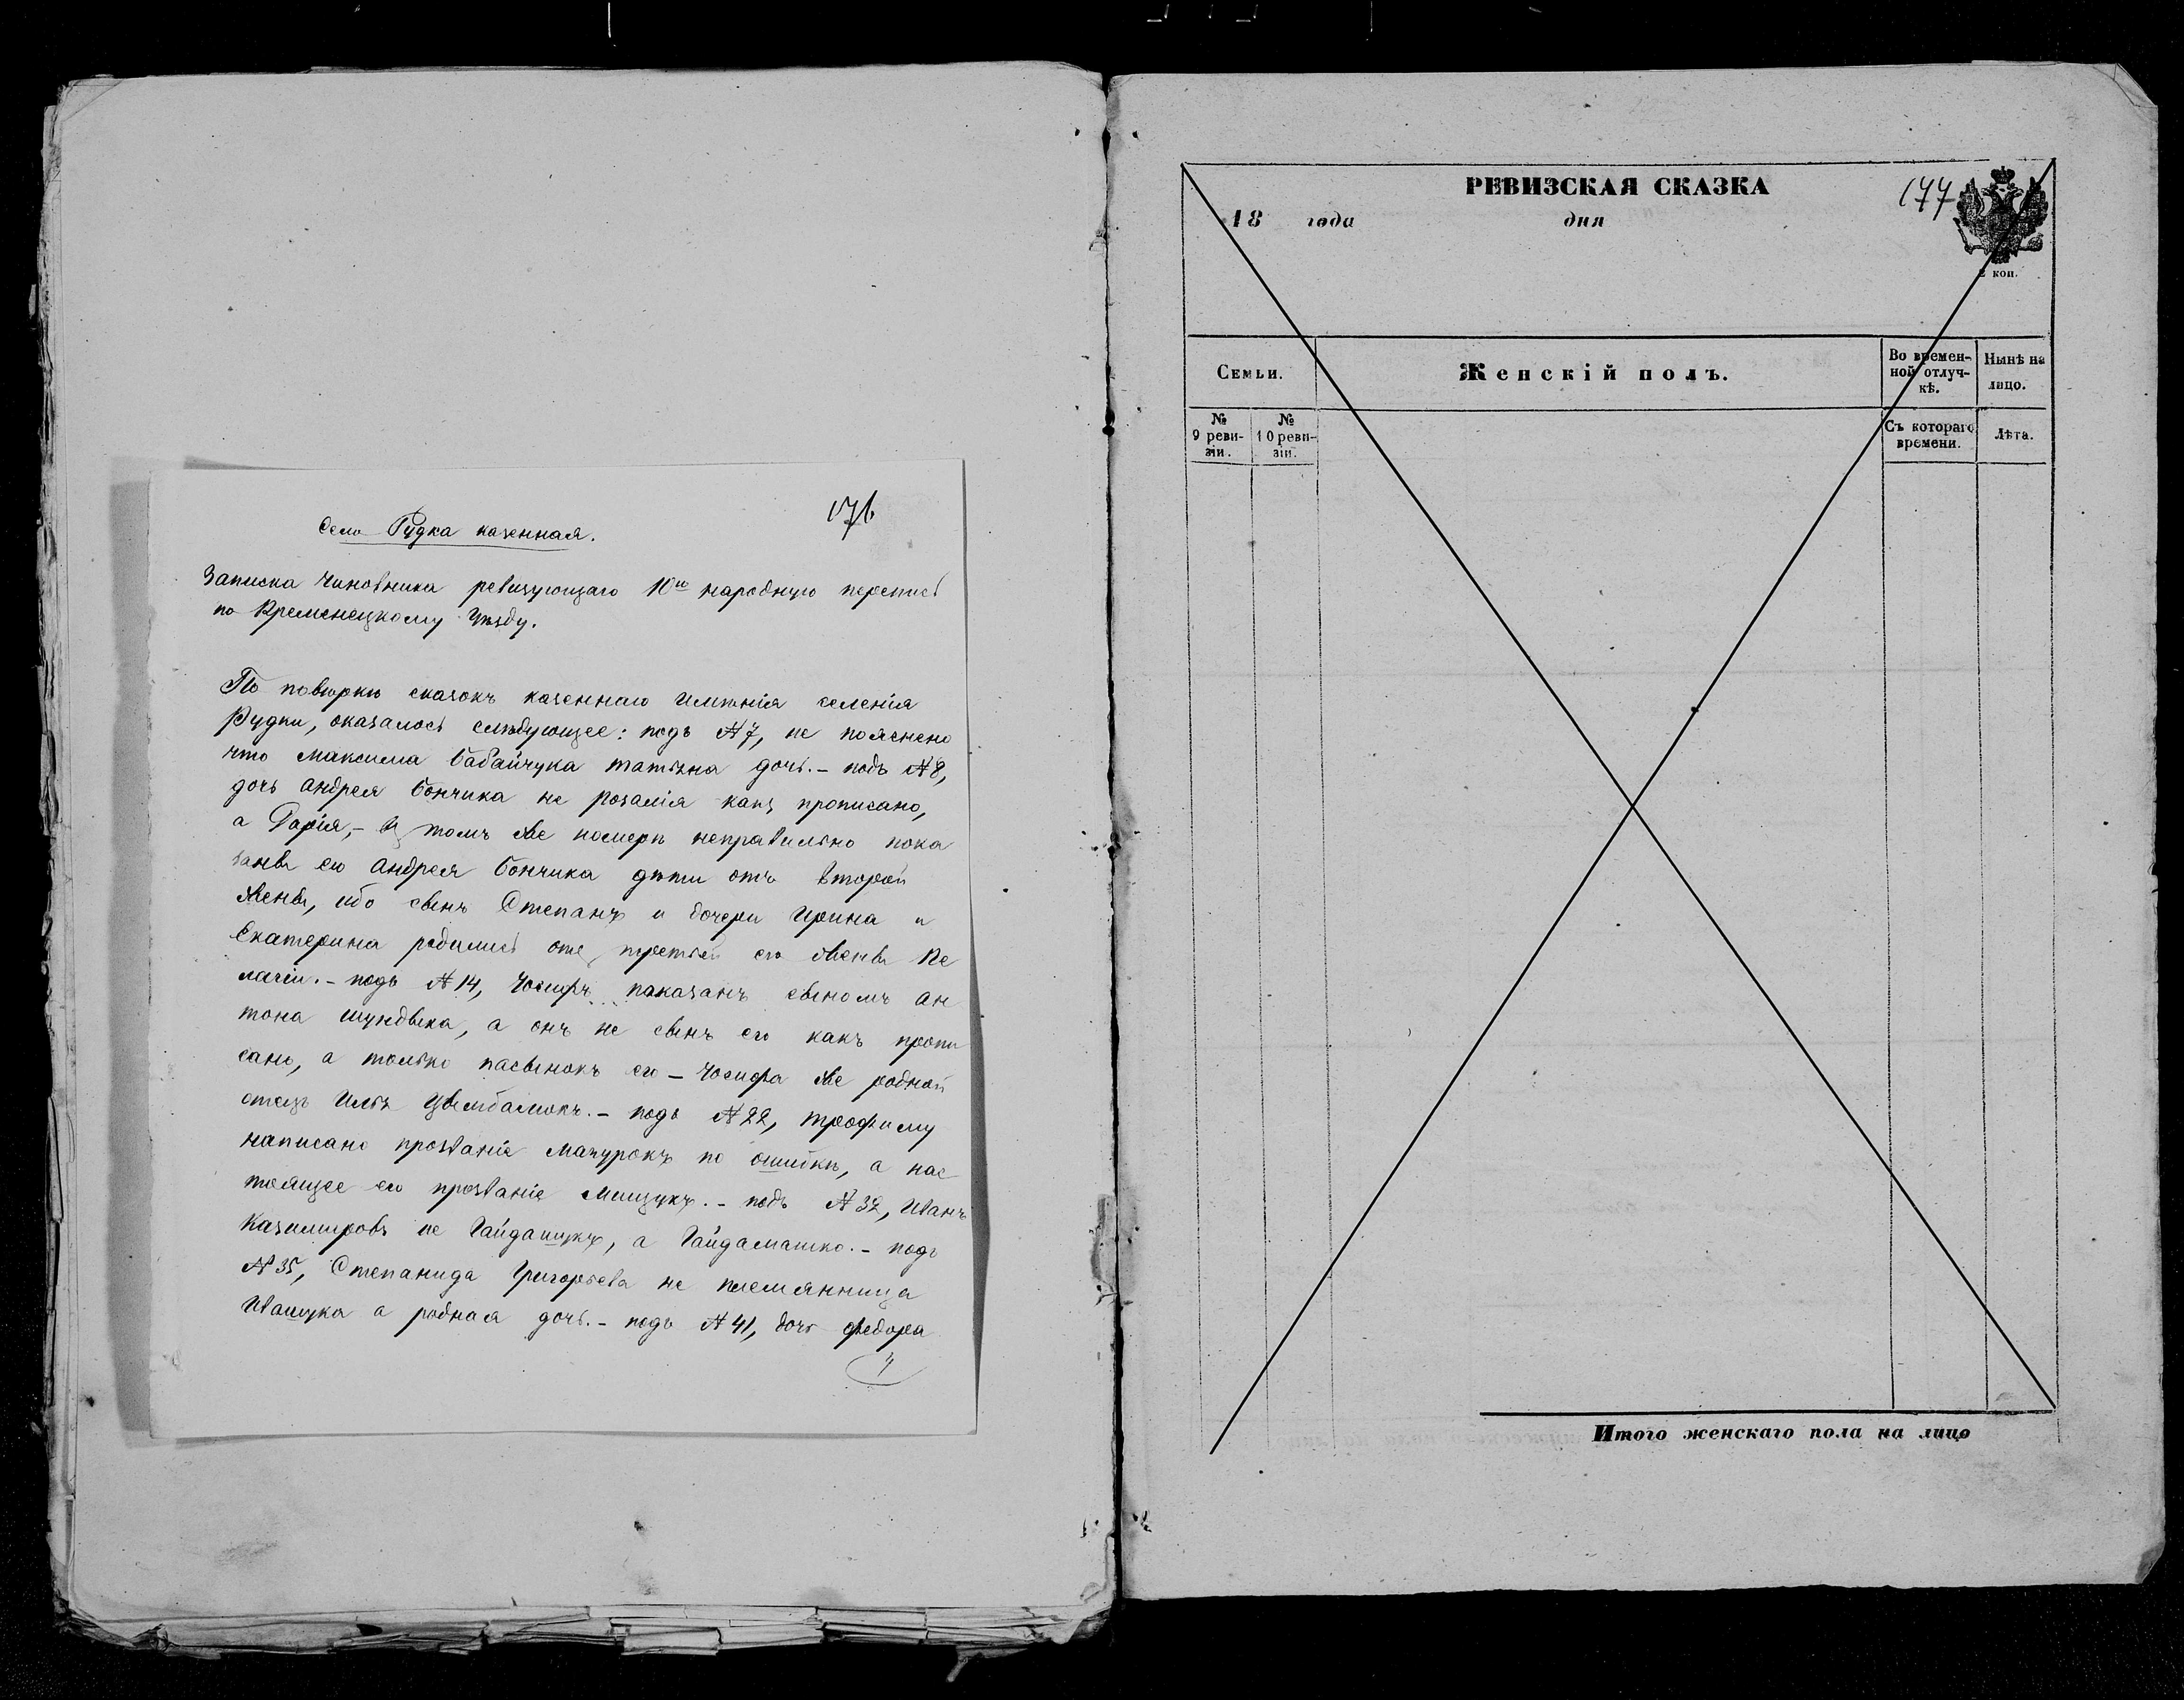 176
Село Рудка казенная.
Записка чиновника ревизующаго 10ю народную перепись
по Кременецкому Уѣзду.
По повѣркѣ сказокъ казеннаго Имѣнія селенія
Рудки, оказалось слѣдующее: подъ №7, не пояснено
что Максима Бабайчука татьяна дочь. – подъ №8,
дочь андрея Бончика не розалія какъ прописано,
а Дарія, – въ томъ же номерѣ неправильно пока
заны его андрея Бончика дѣти отъ второй
жены, ибо сынъ Степанъ и дочери Ирина и
Екатерина родились отъ третьей его жены Пе
лагіи. – подъ №14, Іосифъ показанъ сыномъ ан
тона шундыка, а онъ не сынъ его какъ пропи
сано, а только пасынокъ его – Іосифа же родной
отецъ Илья Цымбалюкъ. – подъ №22, трофиму
написано прозваніе Мазурокъ по ошибкѣ, а нас
тоящее его прозваніе Мищукъ. – подъ №32, Иванъ
Казимировъ не Гайдащукъ, а Гайдамашко. – подъ
№35, Степанида Григорьева не племянница
Иващука а родная дочь. – подъ №41, дочь федора
177
РЕВИЗСКАЯ СКАЗКА
18 года дня
2 коп.
Семьи. Женскій полъ. Во времен-ной отлуч-кѣ. Нынѣ на лицо.
№ 9 реви-зіи. № 10 реви-зіи. Съ котораго времени. Лѣта.
Итого женскаго пола на лицо